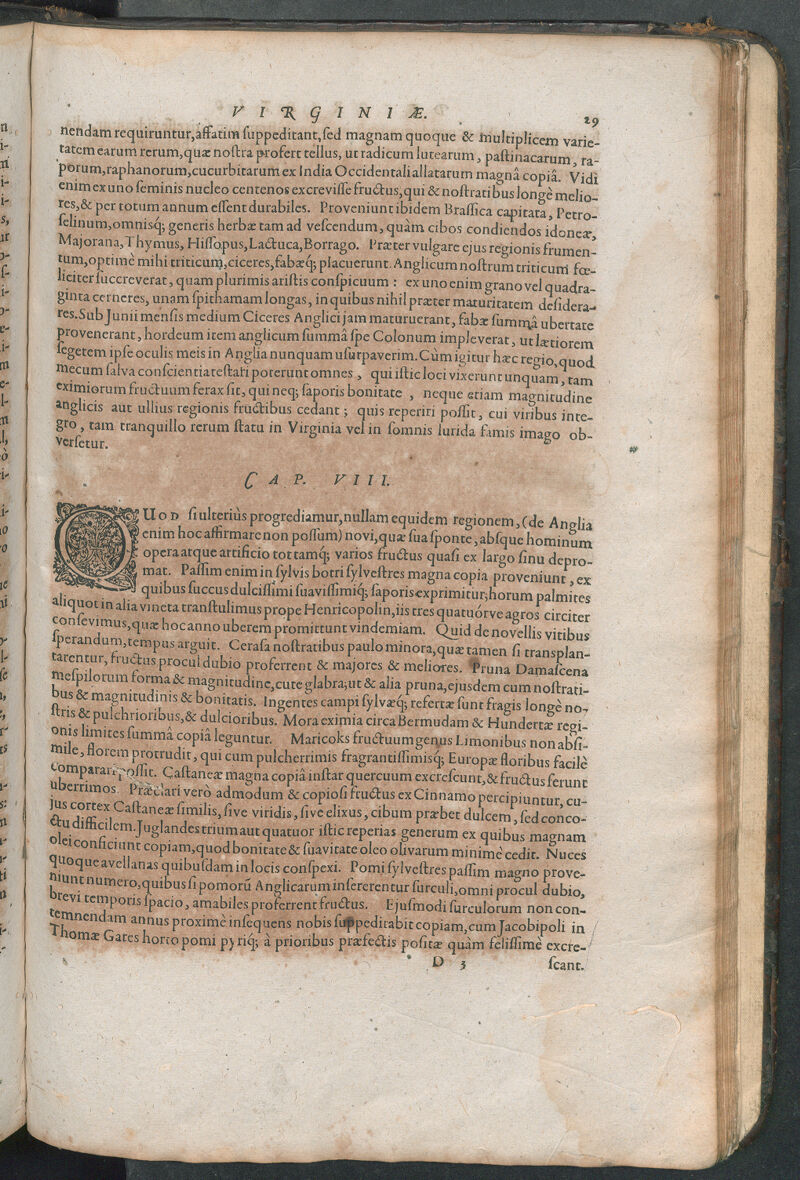 VIRGINIÆ.
29
nendam requiruntur,affatim ſuppeditant,ſed magnam quoque & multiplicem varie-
tatem earum rerum,quæ noſtra profert tellus, ut radicum lutearum, paſtinacarum, ra-
porum,raphanorum,cucurbitarum ex India Occidentali allatarum magnâ copiâ. Vidi
enim ex uno ſeminis nucleo centenos excreviſſe fructus,qui & noſtratibus longè melio-
res,& per totum annum eſſent durabiles. Proveniunt ibidem Braſſica capitata, Petro-
ſelinum,omnisq; generis herbæ tam ad veſcendum, quàm cibos condiendos idoneæ,
Majorana, Thymus, Hiſſopus,Lactuca,Borrago. Præter vulgare ejus regionis frumen-
tum,optimè mihi triticum,ciceres,fabæq; placuerunt. Anglicum noſtrum triticum fœ-
liciter ſuccreverat, quam plurimis ariſtis conſpicuum : ex uno enim grano vel quadra-
ginta cerneres, unam ſpithamam longas, in quibus nihil præter maturitatem deſidera-
res.Sub Junii menſis medium Ciceres Anglici jam maturuerant, fabæ ſummâ ubertate
provenerant, hordeum item anglicum ſummâ ſpe Colonum impleverat, ut lætiorem
ſegetem ipſe oculis meis in Anglia nunquam uſurpaverim. Cùm igitur hæc regio,quod
mecum ſalva conſcientia teſtari poterunt omnes, qui iſtic loci vixerunt unquam, tam
eximiorum fructuum ferax ſit, qui neq; ſaporis bonitate , neque etiam magnitudine
anglicis aut ullius regionis fructibus cedant ; quis reperiri poſſit, cui viribus inte-
gro, tam tranquillo rerum ſtatu in Virginia vel in ſomnis lurida famis imago ob-
verſetur.
CAP. VIII.
QUOD ſi ulteriùs progrediamur,nullam equidem regionem, (de Anglia
enim hoc affirmare non poſſum) novi,quæ ſua ſponte, abſque hominum
opera atque artificio tot tamq; varios fructus quaſi ex largo ſinu depro-
mat. Paſſim enim in ſylvis botri ſylveſtres magna copia proveniunt, ex
quibus ſuccus dulciſſimi ſuaviſſimiq; ſaporis exprimitur;horum palmites
aliquot in alia vineta tranſtulimus prope Henricopolin,iis tres quatuórve agros circiter
conſevimus,quæ hoc anno uberem promittunt vindemiam. Quid de novellis vitibus
ſperandum,tempus arguit. Ceraſa noſtratibus paulo minora,quæ tamen ſi transplan-
tarentur, fructus procul dubio proferrent & majores & meliores. Pruna Damaſcena
meſpilorum forma & magnitudine,cute glabra;ut & alia pruna,ejusdem cum noſtrati-
bus & magnitudinis & bonitatis. Ingentes campi ſylvæq; refertæ ſunt fragis longè no-
ſtris & pulchrioribus,& dulcioribus. Mora eximia circa Bermudam & Hundertæ regi-
onis limites ſumma copiâ leguntur. Maricoks fructuum genus Limonibus non abſi-
mile, florem protrudit, qui cum pulcherrimis fragrantiſſimisq; Europæ floribus facilè
comparari poſſit. Caſtaneæ magna copiâ inſtar quercuum excreſcunt,& fructus ferunt
uberrimos. Præclari verò admodum & copioſi fructus ex Cinnamo percipiuntur, cu-
jus cortex Caſtaneæ ſimilis, ſive viridis, ſive elixus, cibum præbet dulcem, ſed conco-
ctu difficilem.Juglandes trium aut quatuor iſtic reperias generum ex quibus magnam
olei conficiunt copiam,quod bonitate & ſuavitate oleo olivarum minimè cedit. Nuces
quoque avellanas quibuſdam in locis conſpexi. Pomi ſylveſtres paſſim magno prove-
niunt numero,quibus ſi pomorū Anglicarum inſererentur ſurculi,omni procul dubio,
brevi temporis ſpacio, amabiles proferrent fructus. Ejuſmodi ſurculorum non con-
temnendam annus proximè inſequens nobis ſuppeditabit copiam,cum Jacobipoli in
Thomæ Gates horto pomi pyriq; à prioribus præfectis poſitæ quàm feliſſimè excre-
D 3
ſcant.